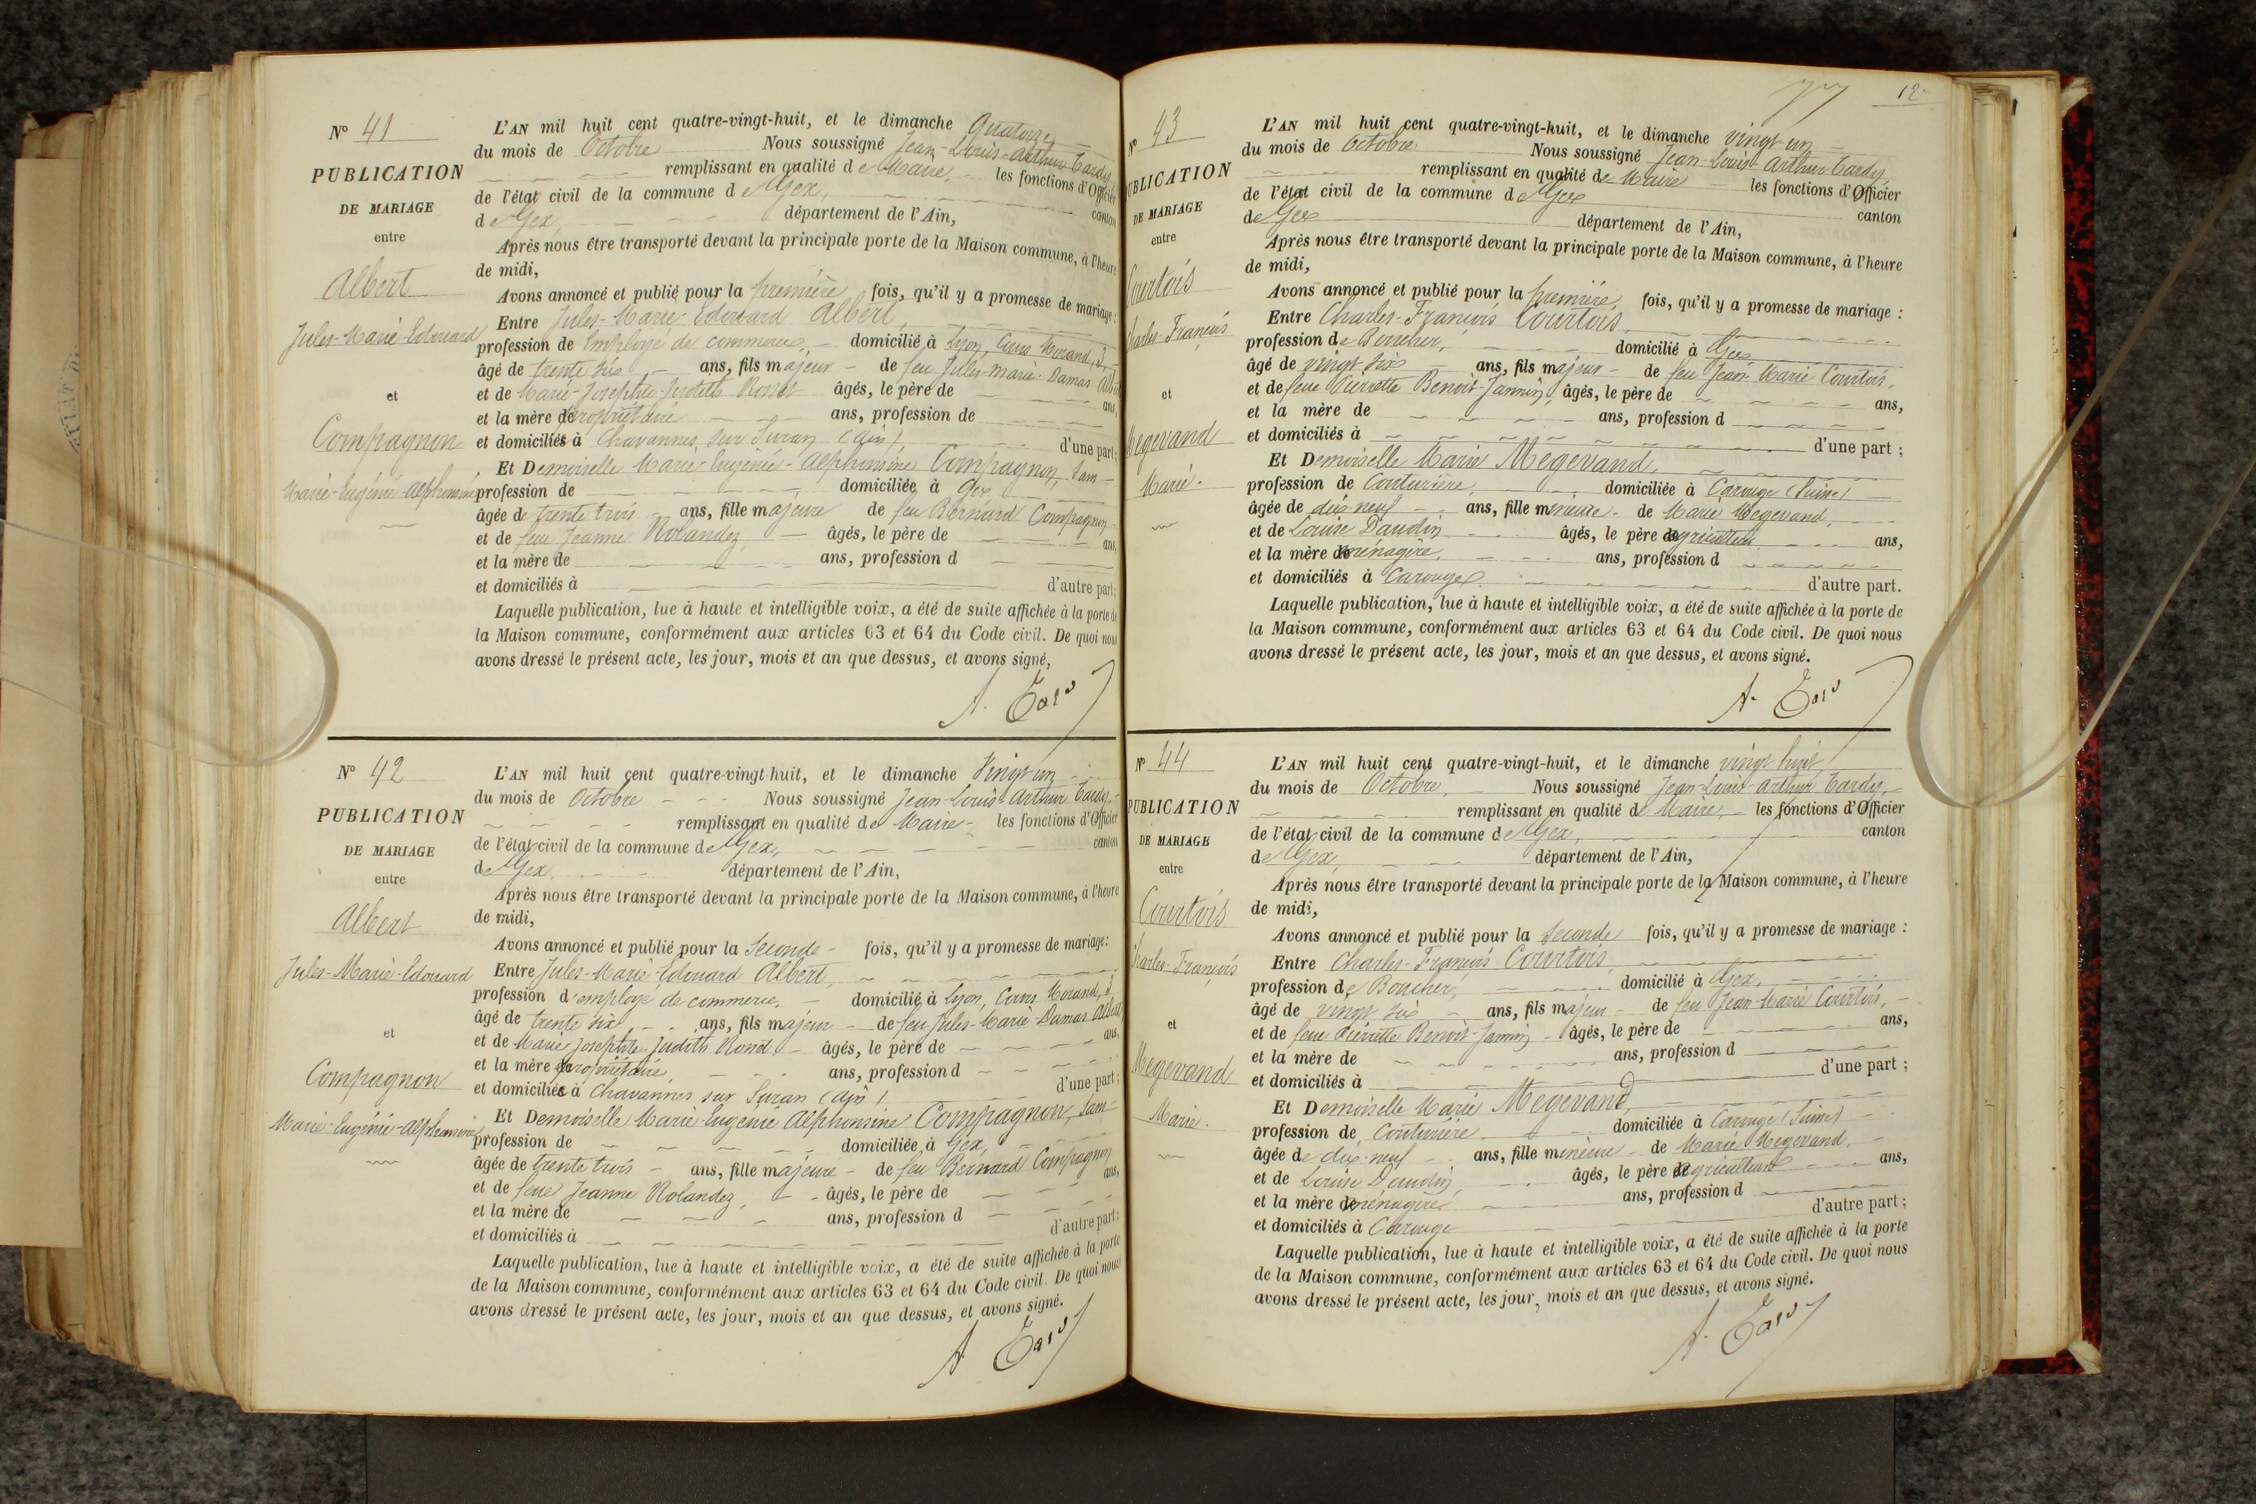 N° 41
PUBLICATION
DE MARIAGE
entre
Albert
Jules-Marie-Edouard
et
Compagnon
Marie-Eugénie-Alphonsine
L'AN mil huit cent quatre-vingt-huit, et le dimanche Quatorze
du mois de Octobre Nous soussigné Jean-Louis-Arthur Tardy,
remplissant en qualité de Maire, les fonctions d'Officier
de l'état civil de la commune de Gex, canton
de Gex, département de l'Ain,
Après nous être transporté devant la principale porte de la Maison commune, à l'heure
de midi,
Avons annoncé et publié pour la première fois, qu'il y a promesse de mariage :
Entre Jules-Marie Edouard Albert,
profession de Employé de commerce, domicilié à Lyon, Cours Morand, 5,
âgé de trente six ans, fils majeur de feu Jules-Marie-Damas Albert
et de Marie-Josephte-Judith Rosset âgés, le père de ans,
et la mère de propriétaire ans, profession de
et domiciliés à Chavannes sur Suran (Ain) d'une part;
Et Demoiselle Marie-Eugénie-Alphonsine Compagnon, sans
profession de domiciliée à Gex
âgée de trente trois ans, fille majeure de feu Bernard Compagnon
et de feue Jeanne Rolandez âgés, le père de ans,
et la mère de ans, profession d
et domiciliés à d'autre part;
Laquelle publication, lue à haute et intelligible voix, a été de suite affichée à la porte de
la Maison commune, conformément aux articles 63 et 64 du Code civil. De quoi nous
avons dressé le présent acte, les jour, mois et an que dessus, et avons signé,
A. Tardy
N° 42
PUBLICATION
DE MARIAGE
entre
Albert
Jules-Marie-Edouard
et
Compagnon
Marie-Eugénie-Alphonsine
L'AN mil huit cent quatre-vingt-huit, et le dimanche Vingt un
du mois de Octobre Nous soussigné Jean-Louis-Arthur Tardy,
remplissant en qualité de Maire les fonctions d'Officier
de l'état civil de la commune de Gex, canton
de Gex, département de l'Ain,
Après nous être transporté devant la principale porte de la Maison commune, à l'heure
de midi,
Avons annoncé et publié pour la Seconde fois, qu'il y a promesse de mariage:
Entre Jules-Marie-Edouard Albert,
profession d'employé de commerce, domicilié à Lyon, Cours Morand, 5,
âgé de trente six ans, fils majeur de feu Jules-Marie-Damas Albert
et de Marie Josephte Judith Rosset âgés, le père de ans,
et la mère de propriétaire ans, profession d
et domiciliés à Chavannes sur Suran (Ain) d'une part;
Et Demoiselle Marie-Eugénie Alphonsine Compagnon, sans
profession de domiciliée à Gex,
âgée de trente trois ans, fille majeure de feu Bernard Compagnon
et de feue Jeanne Rolandez, âgés, le père de ans,
et la mère de ans, profession d
et domiciliés à d'autre part;
Laquelle publication, lue à haute et intelligible voix, a été de suite affichée à la porte
de la Maison commune, conformément aux articles 63 et 64 du Code civil. De quoi nous
avons dressé le présent acte, les jour, mois et an que dessus, et avons signé.
A. Tardy
12
N° 43
PUBLICATION
DE MARIAGE
entre
Courtois
Charles-François
et
Megevand
Marie.
L'AN mil huit cent quatre-vingt-huit, et le dimanche vingt-un
du mois de Octobre Nous soussigné Jean-Louis-Arthur Tardy,
remplissant en qualité de Maire les fonctions d'Officier
de l'état civil de la commune de Gex canton
de Gex département de l'Ain,
Après nous être transporté devant la principale porte de la Maison commune, à l'heure
de midi,
Avons annoncé et publié pour la première fois, qu'il y a promesse de mariage :
Entre Charles-François Courtois,
profession de Boucher, domicilié à Gex
âgé de vingt six ans, fils majeur de feu Jean-Marie Courtois,
et de feue Pierrette Benoit-Jannin, âgés, le père de ans,
et la mère de ans, profession d
et domiciliés à d'une part ;
Et Demoiselle Marie Megevand,
profession de Couturière, domiciliée à Carouge (Suisse)
âgée de dix-neuf ans, fille mineure de Marie Megevand,
et de Louise Daudin âgés, le père de agriculteur ans,
et la mère de ménagère, ans, profession d
et domiciliés à Carouge. d'autre part.
Laquelle publication, lue à haute et intelligible voix, a été de suite affichée à la porte de
la Maison commune, conformément aux articles 63 et 64 du Code civil. De quoi nous
avons dressé le présent acte, les jour, mois et an que dessus, et avons signé.
A. Tardy
N° 44
PUBLICATION
DE MARIAGE
entre
Courtois
Charles-François
et
Megevand
Marie.
L'AN mil huit cent quatre-vingt-huit, et le dimanche vingt huit
du mois de Octobre, Nous soussigné Jean-Louis-Arthur Tardy,
remplissant en qualité de Maire, les fonctions d'Officier
de l'état civil de la commune de Gex, canton
de Gex, département de l'Ain,
Après nous être transporté devant la principale porte de la Maison commune, à l'heure
de midi,
Avons annoncé et publié pour la seconde fois, qu'il y a promesse de mariage :
Entre Charles-François Courtois
profession de Boucher, domicilié à Gex,
âgé de vingt six ans, fils majeur de feu Jean-Marie Courtois,
et de feue Pierrette Benoit-Jannin âgés, le père de ans,
et la mère de ans, profession d
et domiciliés à d'une part ;
Et Demoiselle Marie Megevand,
profession de Couturière domiciliée à Carouge (Suisse)
âgée de dix-neuf ans, fille mineure de Marie Megevand,
et de Louise Daudin, âgés, le père de agriculteur ans,
et la mère de ménagère ans, profession d
et domiciliés à Carouge d'autre part ;
Laquelle publication, lue à haute et intelligible voix, a été de suite affichée à la porte
de la Maison commune, conformément aux articles 63 et 64 du Code civil. De quoi nous
avons dressé le présent acte, les jour, mois et an que dessus, et avons signé.
A. Tardy